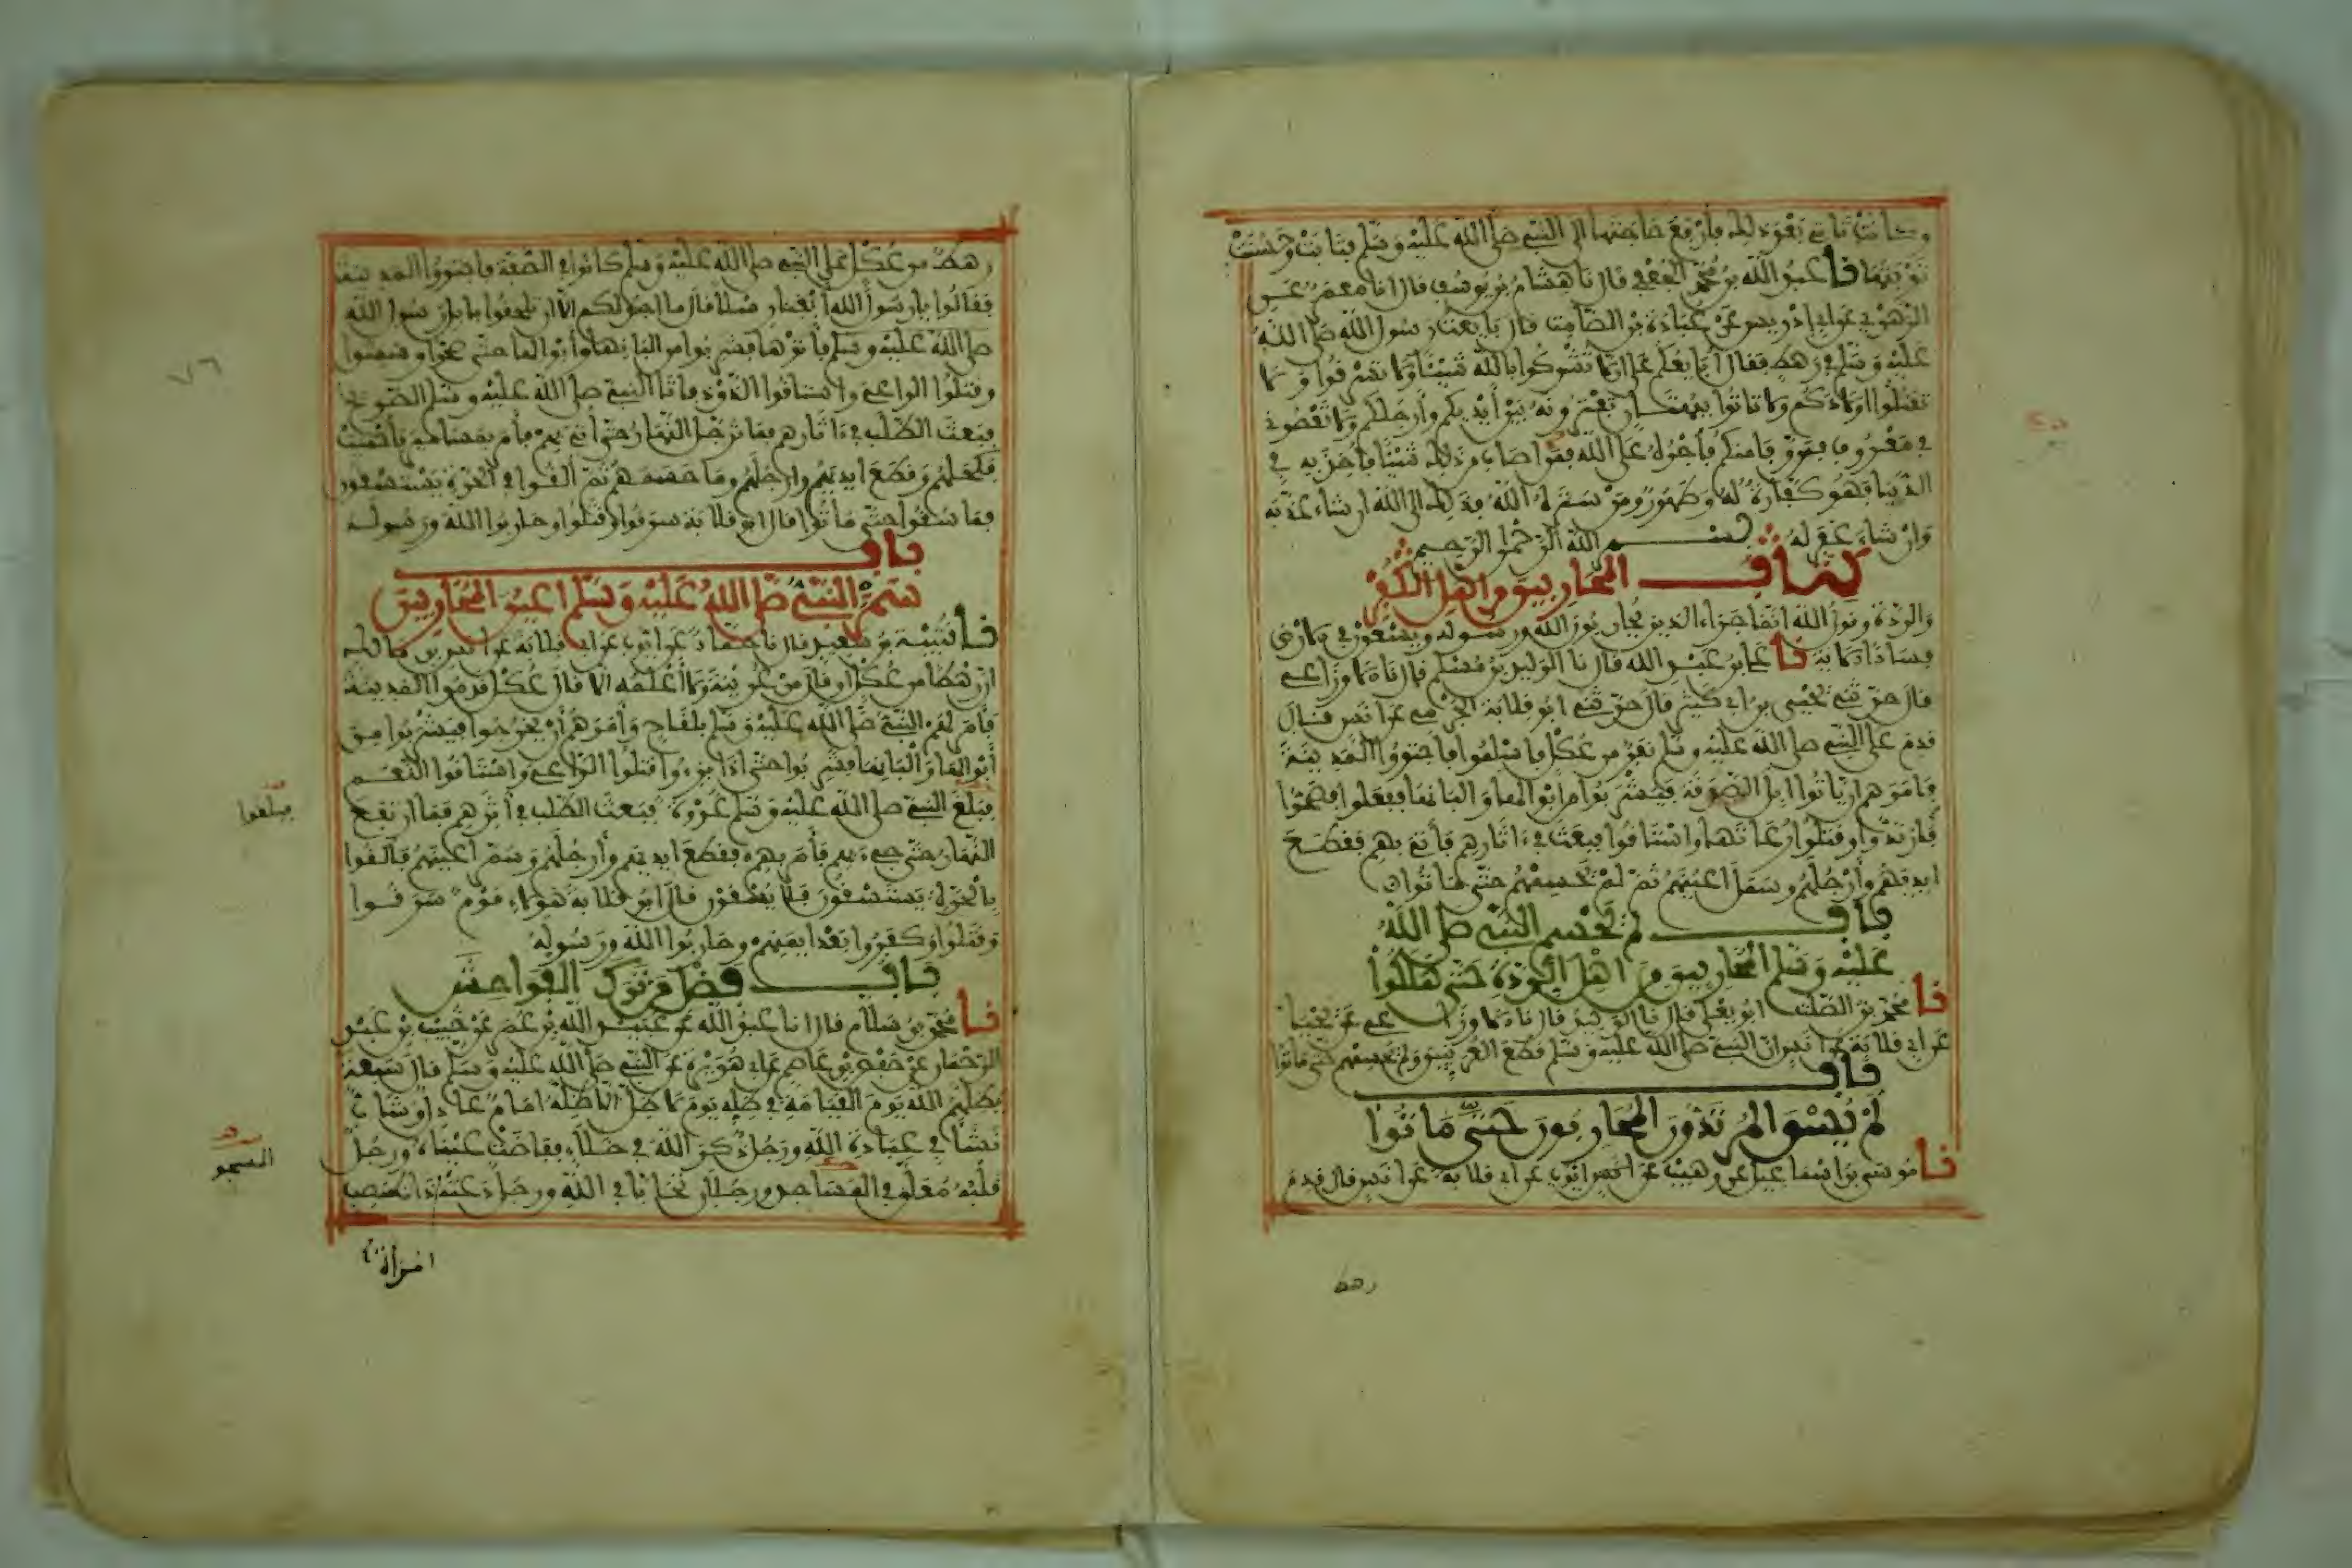 وكانت تاتي بعد ذلك فأرفع حاجتها الى النبي صلى الله عليه وسلم فتابت وحسنت
توبتها نا عبد الله بن محمد الجعفي قال نا هشام بن يوسف قال انا معمر عن
الزهري عن ابي ادريس عن عبادة بن الصامت قال بايعت رسول الله صلى الله
عليه وسلم في رهط فقال أبايعكم على ان لا تشركوا بالله شيئا ولا تسرقوا ولا
تقتلوا اولادكم ولا تاتوا ببهتان تفترونه بين أيديكم وأرجلكم ولا تعصوني
في معروف فمن وفى منكم فأجره على الله فمن اصاب من ذلك شيئا فأخذ به في
الدنيا فهو كفارة له وطهور ومن ستره الله فذلك الى الله ان شاء عذبه
وان شاء غفر له بسم الله الرحمن الرحيم
كتاب المحاربين من اهل الكفر
والردة وقول الله انما جزاء الذين يحاربون الله ورسوله ويسعون في الارض
فسادا الاية نا علي بن عبد الله قال نا الوليد بن مسلم قال نا الاوزاعي
قال حدثني يحيى بن ابي كثير قال حدثني ابو قلابة الجرمي عن انس قال
قدم على النبي صلى الله عليه وسلم نفر من عكل فأسلموا فاجتووا المدينة
فامرهم ان ياتوا ابل الصدقة فيشربوا من ابوالها والبانها ففعلوا فصحوا
فارتدوا وقتلوا رعاتها واستاقوا فبعث في ءاثارهم فأتي بهم فقطع
ايديهم وأرجلهم وسمل اعينهم ثم لم يحسمهم حتى ماتوا
باب لم يحسم النبي صلى الله
عليه وسلم المحاربين من اهل الردة حتى هلكوا
نا محمد بن الصلت ابو يعلى قال نا الوليد قال نا الاوزاعي عن يحيى
عن ابي قلابة عن انس ان النبي صلى الله عليه وسلم قطع العرنيين ولم يحسمهم حتى ماتوا
باب
لم يسق المرتدون المحاربون حتى ماتوا
نا موسى بن اسماعيل عن وهيب عن ايوب عن ابي قلابة عن انس قال قدم
رهط
رهط من عكل على النبي صلى الله عليه وسلم كانوا في الصفة فاجتووا المدينة
فقالوا يا رسول الله أبغنا رسلا قال ما اجد لكم الا ان تلحقوا بابل رسول الله
صلى الله عليه وسلم فأتوها فشربوا من البانها وأبوالها حتى صحوا وسمنوا
وقتلوا الراعي واستاقوا الذود فاتا النبي صلى الله عليه وسلم الصريخ
فبعث الطلب في ءاثارهم فما ترجل النهار حتى أتي بهم فأمر بمسامير فأحميت
فكحلهم وقطع ايديهم وارجلهم وما حسمهم ثم القوا في الحرة يستسقون
فما سقوا حتى ماتوا قال ابو قلابة سرقوا وقتلوا وحاربوا الله ورسوله
باب
سمر النبي صلى الله عليه وسلم اعين المحاربين
نا قتيبة بن سعيد قال نا حماد عن ايوب عن ابي قلابة عن انس بن مالك
ان رهطا من عكل او قال من عرينة ولا أعلمه الا قال عكل قدموا المدينة
فأمر لهم النبي صلى الله عليه وسلم بلقاح وأمرهم أن يخرجوا فيشربوا من
أبوالها وألبانها فشربوا حتى اذا برءوا قتلوا الراعي واستاقوا النعم
فبلغ النبي صلى الله عليه وسلم غدوة فبعث الطلب في أثرهم فما ارتفع
النهار حتى جيء بهم فأمر بهم فقطع ايديهم وأرجلهم وسمر اعينهم فألقوا
بالحرة يستسقون فلا يسقون قال ابو قلابة هولاء قوم سرقوا
وقتلوا وكفروا بعد ايمنهم وحاربوا الله ورسوله
باب فضل من ترك الفواحش
نا محمد بن سلام قال انا عبد الله عن عبيد الله بن عمر عن خبيب بن عبد
الرحمان عن حفص بن عاصم عن ابي هريرة عن النبي صلى الله عليه وسلم قال سبعة
يظلهم الله يوم القيامة في ظله يوم لا ظل الا ظله امام عادل وشاب
نشأ في عبادة الله ورجل ذكر الله في خلاء ففاضت عيناه ورجل
قلبه معلق في المساجد ورجلان تحابا في الله ورجل دعته ذات منصب
امرأة